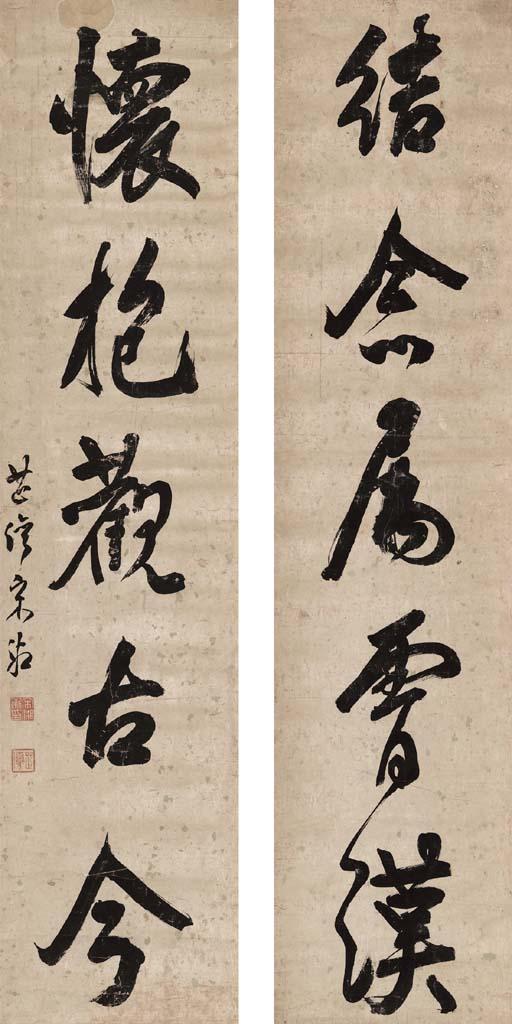 結念属霄漢
懷抱觀古今
芷灣宋湘